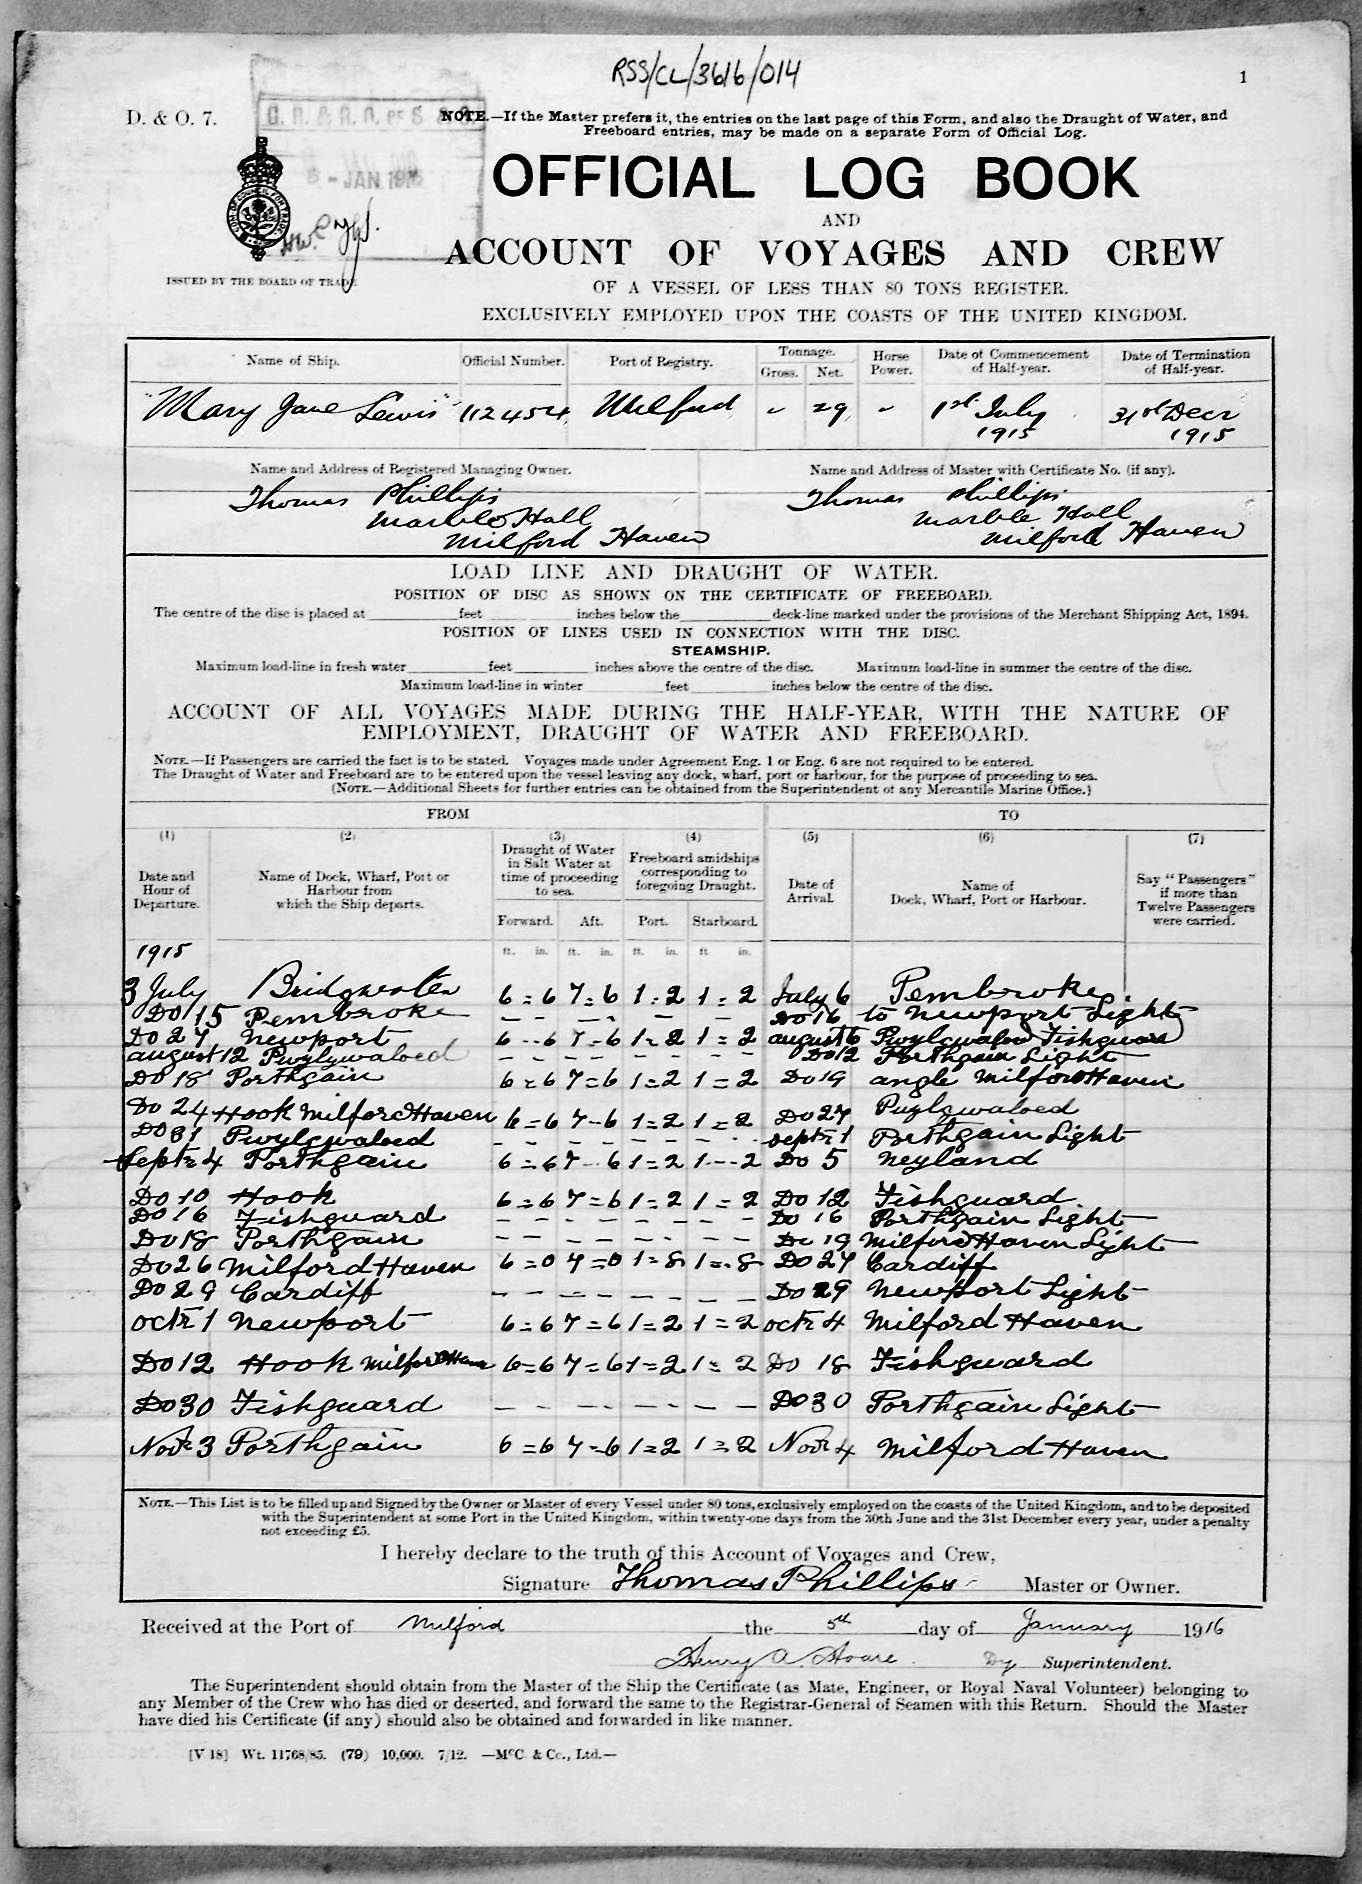 RSS/CL/3616/014
1
D. & O. 7.
NOTE.—If the Master prefers it, the entries on the last page of this Form, and also the Draught of Water, and
Freeboard entries, may be made on a separate Form of Official Log.
JAN 1916
OFFICIAL LOG BOOK
AND
ACCOUNT OF VOYAGES AND CREW
ISSUED BY THE BOARD OF TRADE
OF A VESSEL OF LESS THAN 80 TONS REGISTER.
EXCLUSIVELY EMPLOYED UPON THE COASTS OF THE UNITED KINGDOM.
Name of Ship. Official Number. Port of Registry. Tonnage. Gross. Net. Horse Power. Date of Commencement of Half-year. Date of Termination of Half-year.
"Mary Jane Lewis" 112454 Milford 29 1st July 1915 31st Decr 1915
Name and Address of Registered Managing Owner. Name and Address of Master with Certificate No. (if any).
Thomas Phillips Thomas Phillips
Marble Hall Marble Hall
Milford Haven Milford Haven
LOAD LINE AND DRAUGHT OF WATER.
POSITION OF DISC AS SHOWN ON THE CERTIFICATE OF FREEBOARD.
The centre of the disc is placed at feet inches below the deck-line marked under the provisions of the Merchant Shipping Act, 1894.
POSITION OF LINES USED IN CONNECTION WITH THE DISC.
STEAMSHIP.
Maximum load-line in fresh water feet inches above the centre of the disc. Maximum load-line in summer the centre of the disc.
Maximum load-line in winter feet inches below the centre of the disc.
ACCOUNT OF ALL VOYAGES MADE DURING THE HALF-YEAR, WITH THE NATURE OF
EMPLOYMENT, DRAUGHT OF WATER AND FREEBOARD.
NOTE.—If Passengers are carried the fact is to be stated. Voyages made under Agreement Eng. 1 or Eng. 6 are not required to be entered.
The Draught of Water and Freeboard are to be entered upon the vessel leaving any dock, wharf, port or harbour, for the purpose of proceeding to sea.
(NOTE.—Additional Sheets for further entries can be obtained from the Superintendent of any Mercantile Marine Office.)
FROM TO
(1) (2) (3) (4) (5) (6) (7)
Date and Hour of Departure. Name of Dock, Wharf, Port or Harbour from which the Ship departs. Draught of Water in Salt Water at time of proceeding to sea. Freeboard amidships corresponding to foregoing Draught. Date of Arrival. Name of Dock, Wharf, Port or Harbour. Say "Passengers" if more than Twelve Passengers were carried.
Forward. Aft. Port. Starboard.
1915 ft. in. ft. in. ft. in. ft. in.
3 July Bridgwater 6=6 7=6 1=2 1=2 July 6 Pembroke
Do 15 Pembroke — — — — Do 16 to Newport Light
Do 27 Newport 6--6 7-6 1=2 1=2 august 6 Pwylgwalod Fishguard
august 12 Pwylywaloed - - - - - - - - Do 12 Porthgain Light
Do 18 Porthgain 6=6 7=6 1=2 1=2 Do 19 angle Milford Haven
Do 24 Hook Milford Haven 6=6 7-6 1=2 1=2 Do 27 Pwylgwaloed
Do 31 Pwylgwaloed - - - - - - - - Septr 1 Porthgain Light
Septr 4 Porthgain 6=6 7--6 1=2 1--2 Do 5 Neyland
Do 10 Hook 6=6 7=6 1=2 1=2 Do 12 Fishguard
Do 16 Fishguard - - - - - - - - Do 16 Porthgain Light
Do 18 Porthgain - - - - - - - - Do 19 Milford Haven Light
Do 26 Milford Haven 6=0 7=0 1=8 1=8 Do 27 Cardiff
Do 29 Cardiff - - - - - - - - Do 29 Newport Light
Octr 1 Newport 6=6 7=6 1=2 1=2 Octr 4 Milford Haven
Do 12 Hook Milford Haven 6=6 7=6 1=2 1=2 Do 18 Fishguard
Do 30 Fishguard - - - - - - - - Do 30 Porthgain Light
Novr 3 Porthgain 6=6 7-6 1=2 1=2 Novr 4 Milford Haven
NOTE.—This List is to be filled up and Signed by the Owner or Master of every Vessel under 80 tons, exclusively employed on the coasts of the United Kingdom, and to be deposited
with the Superintendent at some Port in the United Kingdom, within twenty-one days from the 30th June and the 31st December every year, under a penalty
not exceeding £5.
I hereby declare to the truth of this Account of Voyages and Crew,
Signature Thomas Phillips Master or Owner.
Received at the Port of Milford the 5th day of January 1916
Henry A. Hoare. Dy Superintendent.
The Superintendent should obtain from the Master of the Ship the Certificate (as Mate, Engineer, or Royal Naval Volunteer) belonging to
any Member of the Crew who has died or deserted, and forward the same to the Registrar-General of Seamen with this Return. Should the Master
have died his Certificate (if any) should also be obtained and forwarded in like manner.
[V 18] Wt. 11768/85. (79) 10,000. 7/12. —McC. & Co., Ltd.—